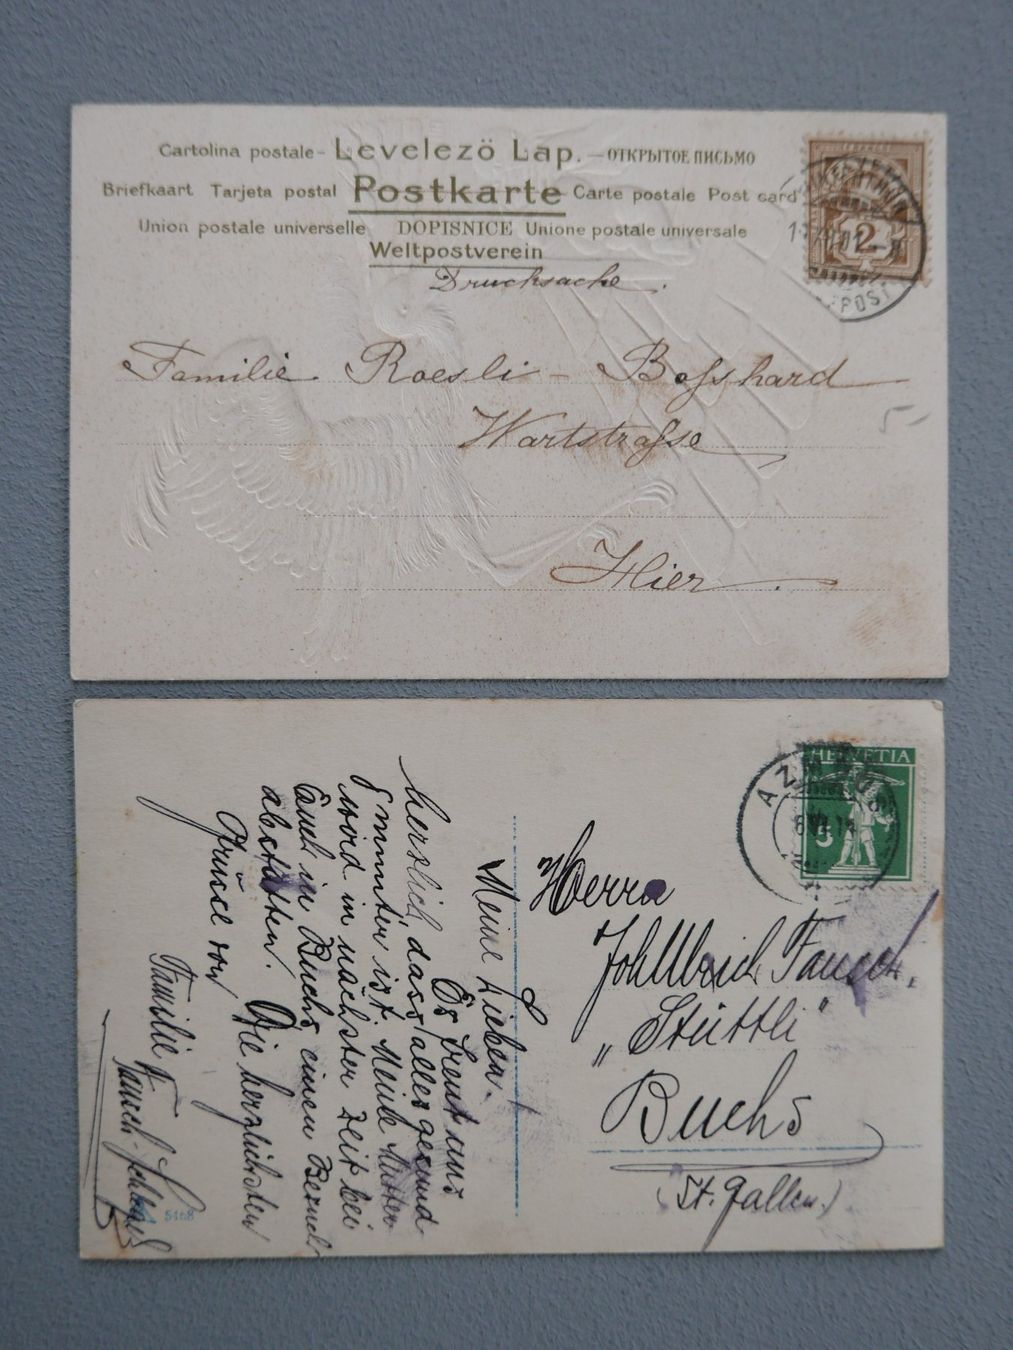 Cartolina postale- Levelezö Lap. — ОТКРЫТОЕ ПИСЬМО
Briefkaart Tarjeta postal Postkarte Carte postale Post card
Union postale universelle DOPISNICE Unione postale universale
Weltpostverein
Drucksache.
2
POST
Familie Roesli - Bosshard
Wartstrasse
5-
Hier.
HELVETIA
5
AZMOOS
Herrn
Joh. Ulrich Tausch.
„Stüttli"
Buchs
(St. Gallen.)
Meine Lieben!
Es freut uns
herzlich, dass alles gesund
& munter ist. Meine Mutter
wird in nächster Zeit bei
Euch in Buchs einen Besuch
abstatten. Die herzlichsten
Grüsse von
Familie Tausch-
5168